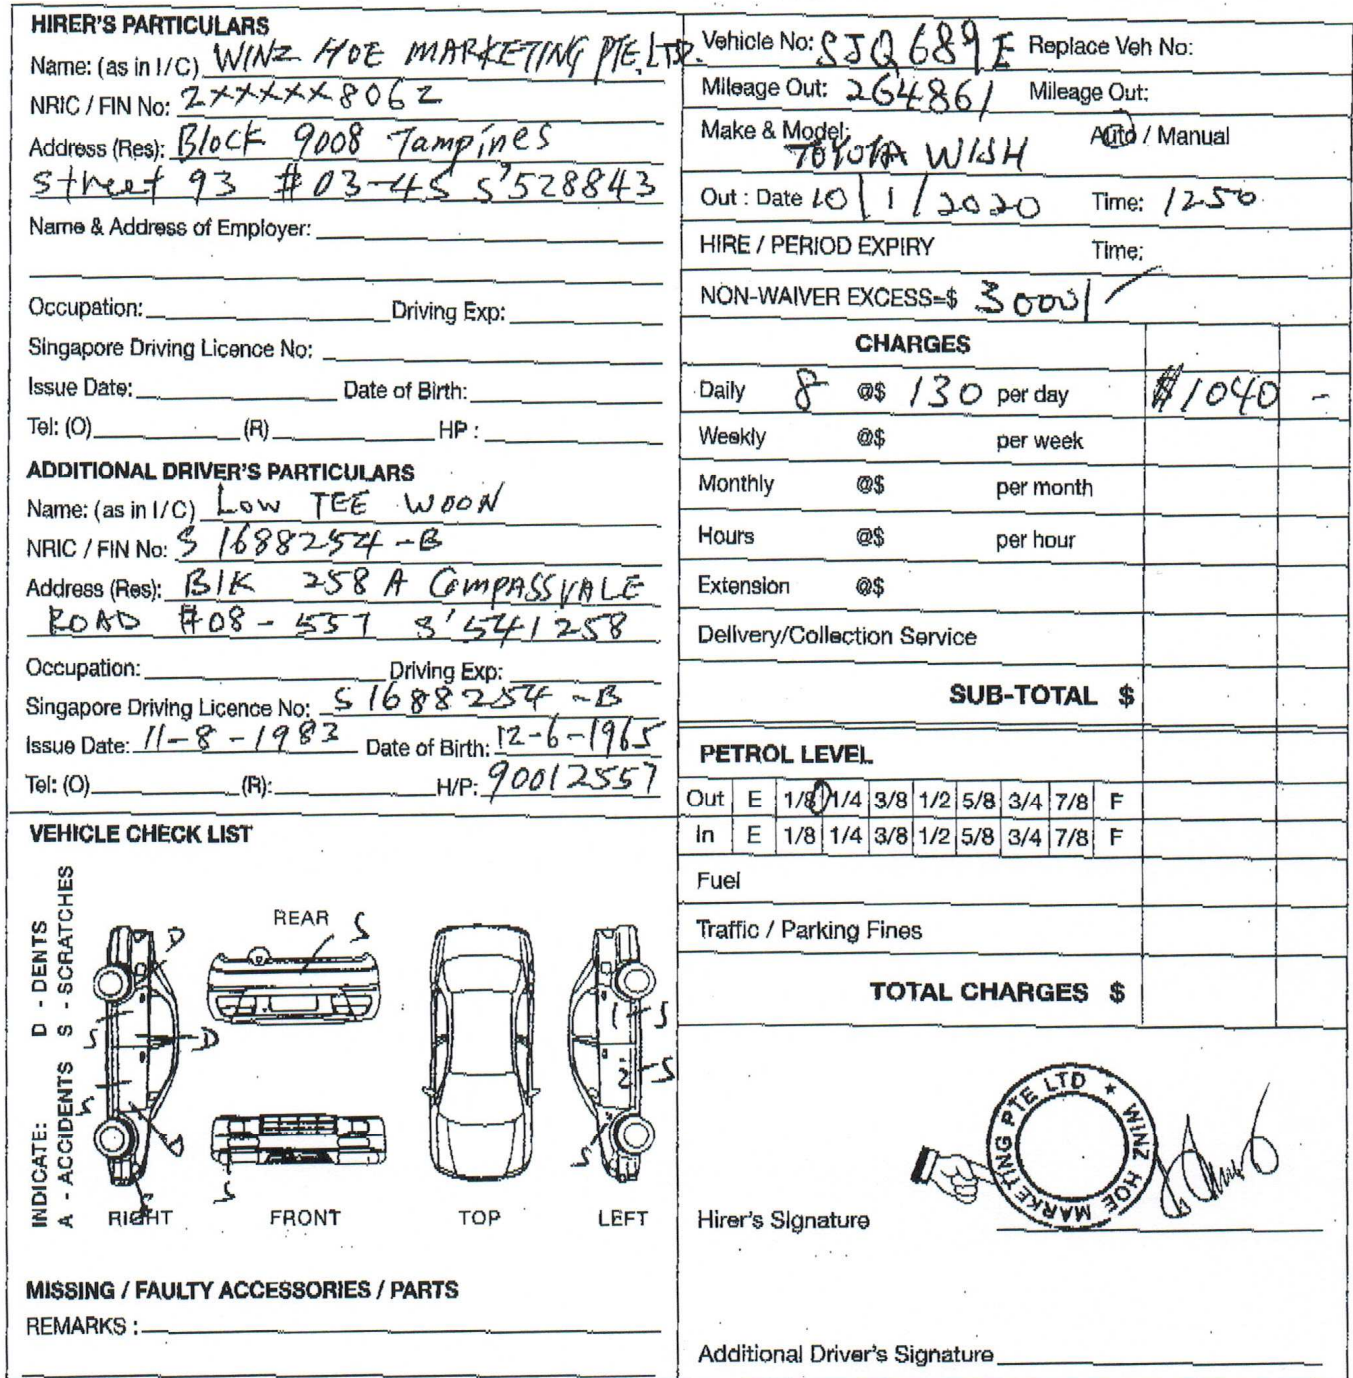 HIRER'S PARTICULARS
Name: (as in I/C) WINZ HOE MARKETING PTE. LTD.
NRIC / FIN No: 2XXXXX806Z
Address (Res): Block 9008 Tampines
street 93 #03-45 S'528843
Name & Address of Employer:
Occupation: Driving Exp:
Singapore Driving Licence No:
Issue Date: Date of Birth:
Tel: (O) (R) HP :
ADDITIONAL DRIVER'S PARTICULARS
Name: (as in I/C) LOW TEE WOON
NRIC / FIN No: S 1688254-B
Address (Res): Blk 258 A COMPASSVALE
ROAD #08-557 S'541258
Occupation: Driving Exp:
Singapore Driving Licence No: S 1688254-B
Issue Date: 11-8-1983 Date of Birth: 12-6-1965
Tel: (O) (R): H/P: 90012557
VEHICLE CHECK LIST
INDICATE: D - DENTS
A - ACCIDENTS S - SCRATCHES
REAR S
D
S D S
S D S
S S
S
RIGHT FRONT TOP LEFT
MISSING / FAULTY ACCESSORIES / PARTS
REMARKS :
Vehicle No: SJQ 689 E Replace Veh No:
Mileage Out: 264861 Mileage Out:
Make & Model: TOYOTA WISH Auto / Manual
Out : Date 10/1/2020 Time: 1250
HIRE / PERIOD EXPIRY Time:
NON-WAIVER EXCESS=$ 3000/
CHARGES
Daily 8 @$ 130 per day $1040 -
Weekly @$ per week
Monthly @$ per month
Hours @$ per hour
Extension @$
Delivery/Collection Service
SUB-TOTAL $
PETROL LEVEL
Out E 1/8 1/4 3/8 1/2 5/8 3/4 7/8 F
In E 1/8 1/4 3/8 1/2 5/8 3/4 7/8 F
Fuel
Traffic / Parking Fines
TOTAL CHARGES $
WINZ HOE MARKETING PTE LTD ★
Hirer's Signature
Additional Driver's Signature